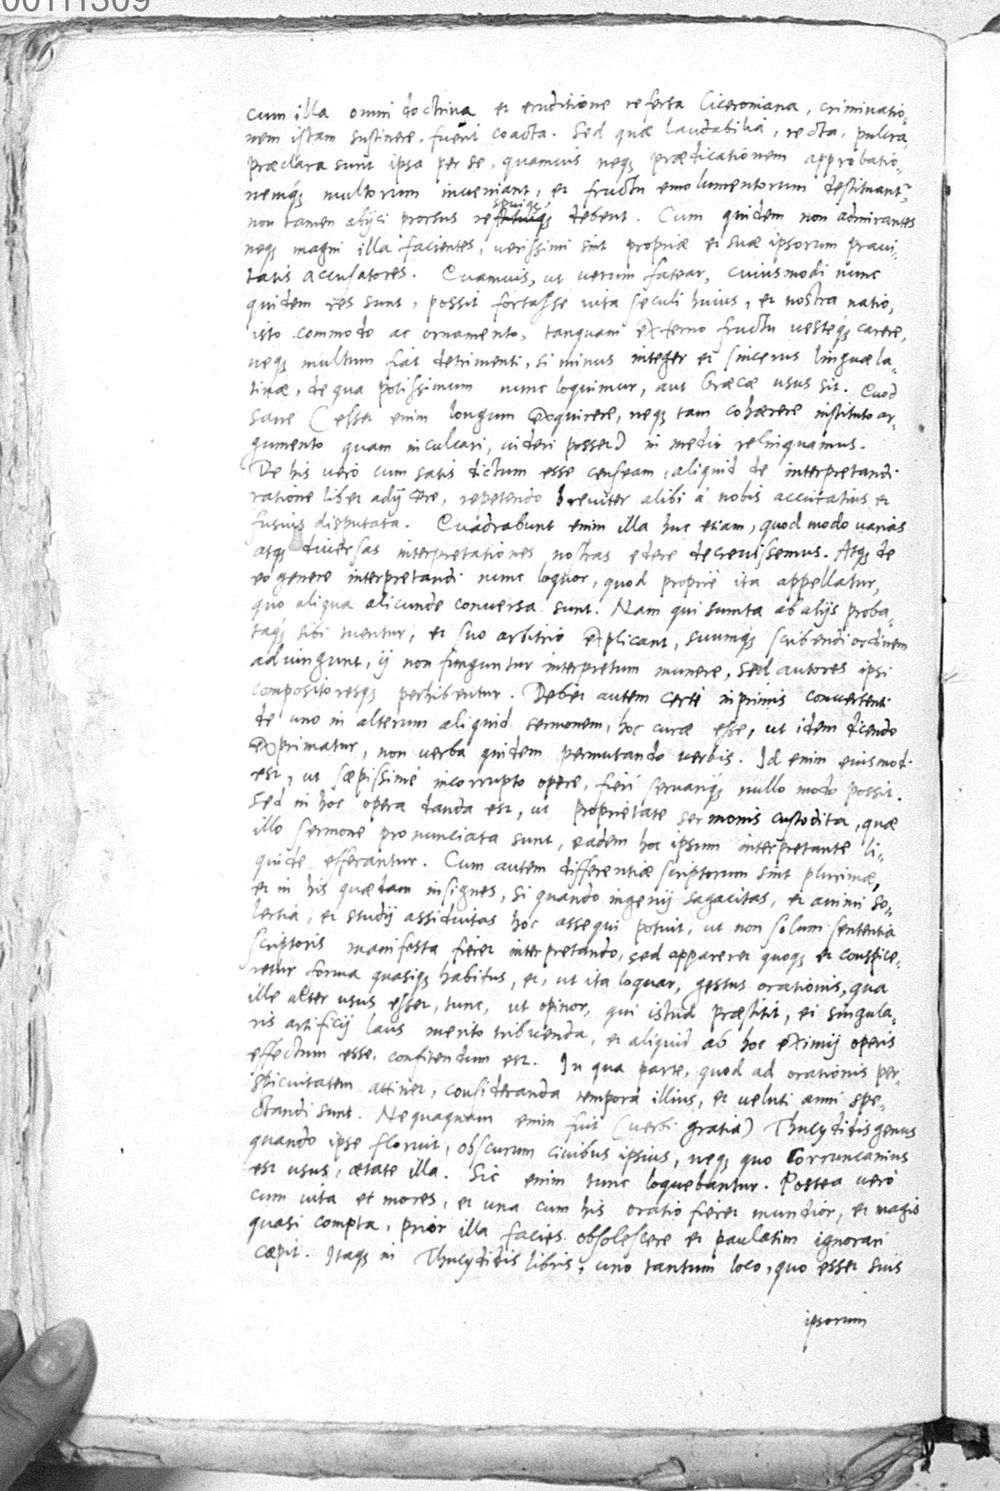 00111309
cum illa omni doctrina et eruditione referta Ciceroniana, criminatio-
nem istam sustinere, fuerit coacta. Sed quæ laudabilia, recta, pulcra,
præclara sunt ipsa per se, quamuis neq; prædicationem approbatio-
nemq; multorum inueniant, et fructu emolumentorum destituant~
non tamen abijci prorsus debent. Cum quidem non admirantes
neq; magni illa facientes, uerissimi sint propriæ et suæ ipsorum praui-
tatis accusatores. Quamuis, ut uerum fatear, cuiusmodi nunc
quidem res sunt, possit fortasse uita seculi huius, et nostra natio,
isto commodo ac ornamento, tanquam externo fructu uesteq; carere,
neq; multum fiat detrimenti, si minus integer et sincerus linguæ la-
tinæ, de qua potissimum nunc loquimur, aut Græcæ usus sit. Quod
sane (esset enim longum exquirere, neq; tam cohærere instituto ar-
gumento quam inculcari, uideri posset) in medio relinquamus.
De his vero cum satis dictum esse censeam, aliquid de interpretandi
ratione libet adijcere, repetendo breuiter alibi à nobis accuratius et
fusius disputata. Quadrabunt enim illa huc etiam, quod modo varias
atq; diuersas interpretationes nostras edere decreuissemus. Atq; de
eo genere interpretandi nunc loquor, quod proprie ita appellatur,
quo aliqua alicunde conuersa sunt. Nam qui sumta ab alijs proba-
taq; sibi tuentur, et suo arbitrio explicant, suumq; scribendi ordinem
adiungunt, ij non funguntur interpretum munere, sed autores ipsi
compositoresq; perhibentur. Debet autem certe inprimis conuertenti
de uno in alterum aliquid sermonem, hoc curæ esse, ut idem dicendo
exprimatur, non verba quidem permutando verbis. Id enim eiusmodi
est, ut sæpissime incorrupto opere, fieri seruariq; nullo modo possit.
Sed in hoc opera danda est, ut proprietate sermonis custodita, quæ
illo sermone pronunciata sunt, eadem hoc ipsum interpretante li-
quide efferantur. Cum autem differentiæ scriptorum sint plurimæ,
et in his quædam insignes, si quando ingenij sagacitas, et animi so-
lertia, et studij assiduitas hoc assequi potuit, ut non solum sententia
scriptoris manifesta fieret interpretando, sed appareret quoq; et conspice-
retur forma quasiq; habitus, et, ut ita loquar, gestus orationis, qua
ille alter usus esset, tunc, ut opinor, qui istud præstitit, ei singula-
ris artificij laus merito tribuenda, et aliquid ab hoc eximij operis
effectum esse, confitendum est. In qua parte, quod ad orationis per-
spicuitatem attinet, consideranda tempora illius, et ueluti anni spe-
ctandi sunt. Nequaquam enim fuit (verbi gratia) Thucydidis genus
quando ipse floruit, obscurum ciuibus ipsius, neq; quo Corruncanius
est usus, ætate illa. Sic enim tunc loquebantur. Postea uero
cum uita et mores, et una cum his oratio fieret mundior, et magis
quasi compta, prior illa facies obsolescere et paulatim ignorari
cæpit. Itaq; in Thucydidis libris, uno tantum loco, quo esset suis
ipsorum